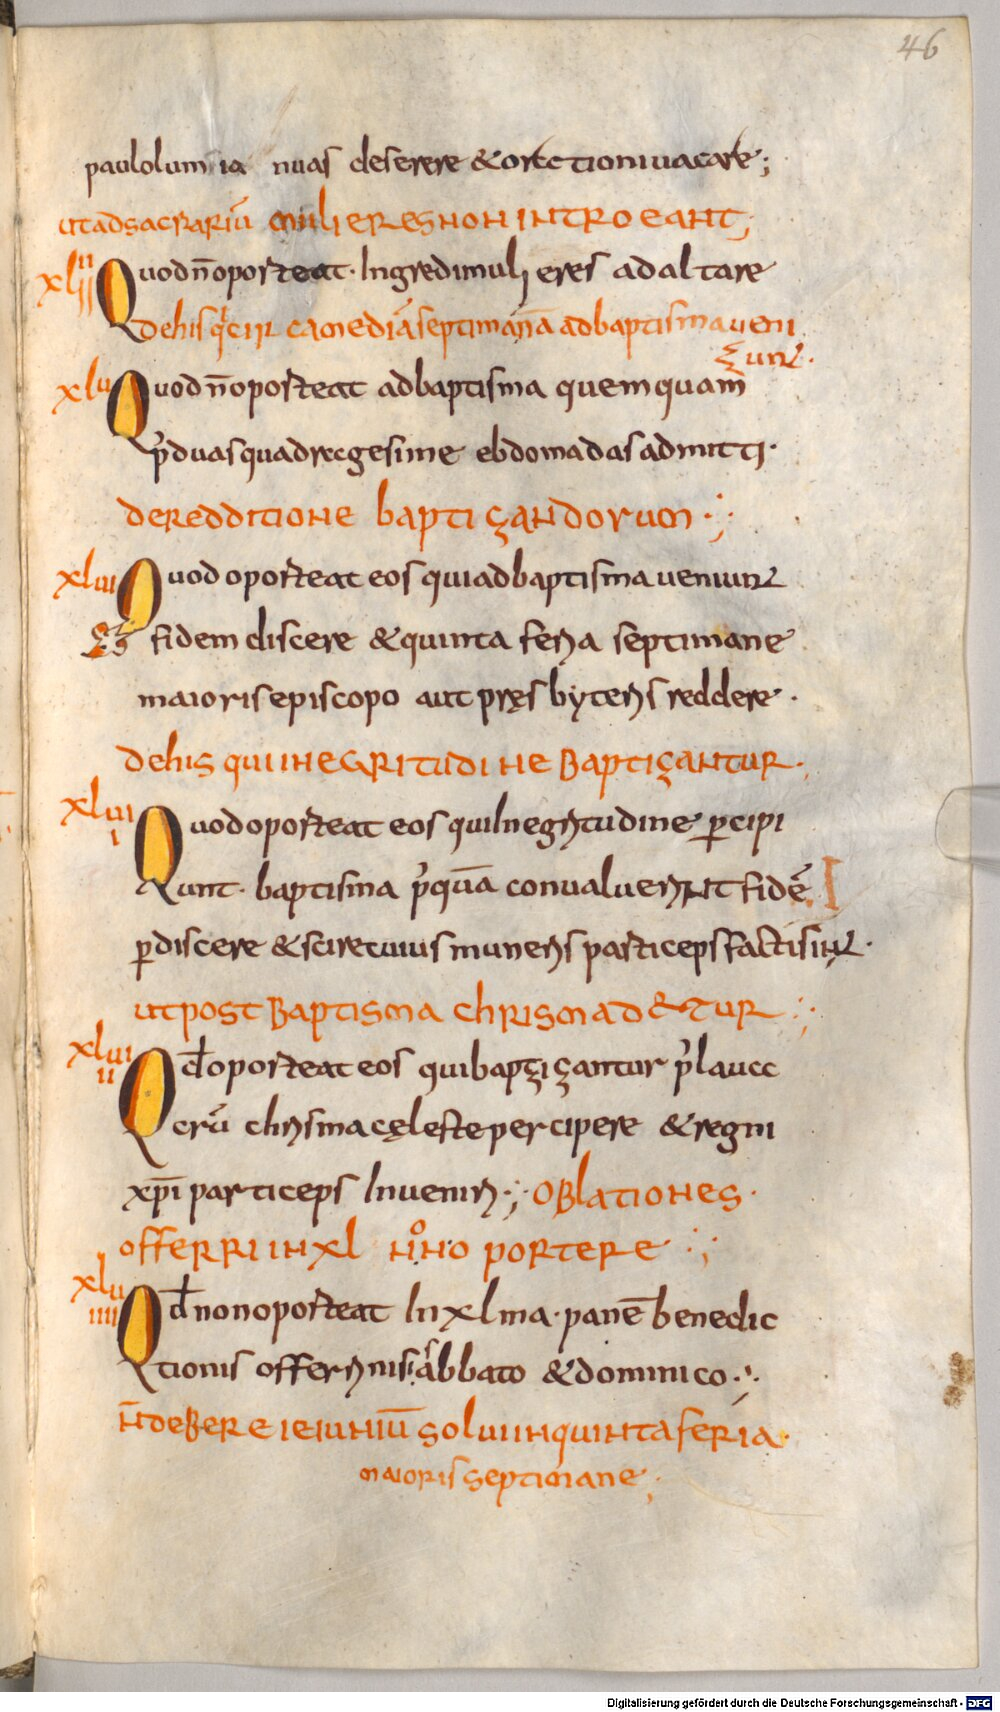 46
paulolum ia nuas deserere & orationi uacare;
ut ad sacrariū mulieres non introeant;
xliiii Quod nō oporteat. Ingredi mulieres ad altare
de his q circa mediā septimanā ad baptisma ueni
unt.
xlu Quod nō oporteat ad baptisma quemquam
p̄ duas quadragesime ebdomadas admitti.
de redditione baptiçandorum
xlui Quod oporteat eos qui ad baptisma ueniunt
fidem discere & quinta feria septimane
maioris episcopo aut pręsbyteris reddere.
de his qui in egritudine baptiçantur.
xluii Quod oporteat eos qui In egritudine percipi
unt. baptisma p̄quā conualuerint fidē
perdiscere & scire cuius muneris participes facti sint.
ut post baptisma chrisma detur
xluiii Qđ oporteat eos qui baptiçantur p̄ laua
crū chrisma cęleste percipere & regni
xp̄i particeps Inueniri. oblationes.
offerri in xl n̄ oportere
xluiiii Qđ non oporteat In xlma. panē benedic
tionis offerri nisi sabbato & dominico.
n̄ debere ieiuniū solui in quinta feria
maioris septimane;
Digitalisierung gefördert durch die Deutsche Forschungsgemeinschaft - DFG